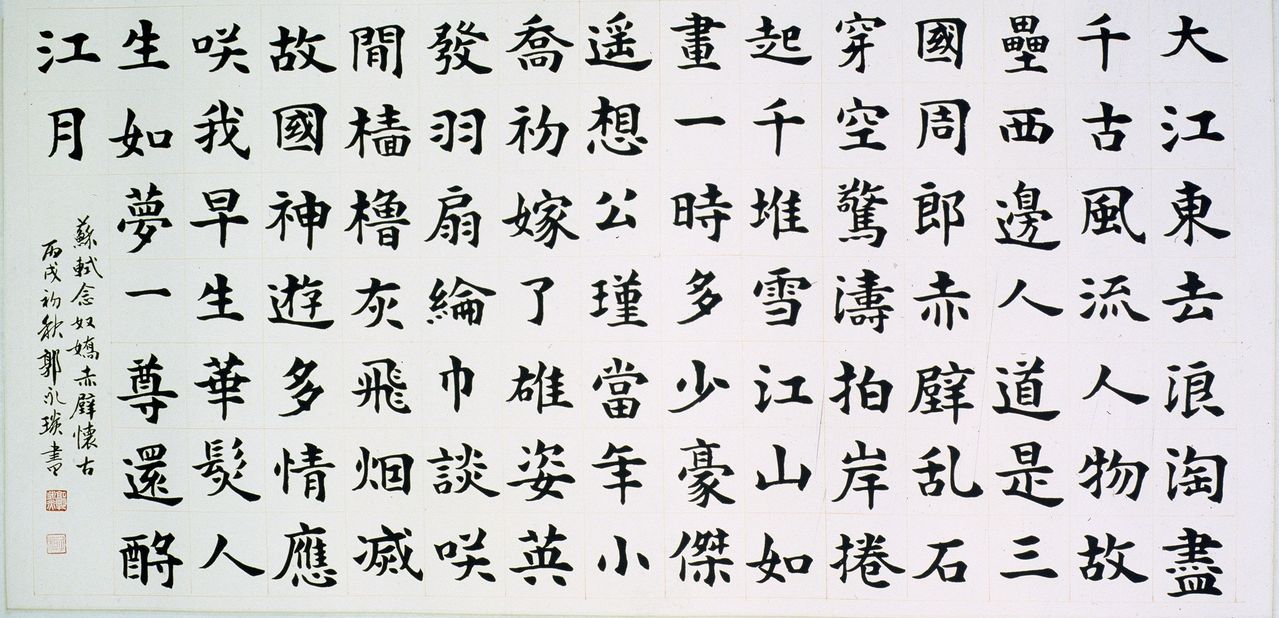 大江東去浪淘盡
千古風流人物故
壘西邊人道是三
國周郎赤壁乱石
穿空驚濤拍岸捲
起千堆雪江山如
畫一時多少豪傑
遥想公瑾當年小
喬初嫁了雄姿英
發羽扇綸巾談咲
間檣櫓灰飛烟滅
故國神遊多情應
咲我早生華髮人
生如夢一尊還酹
江月
蘇軾念奴嬌赤壁懷古
丙戌初秋郭永琰書